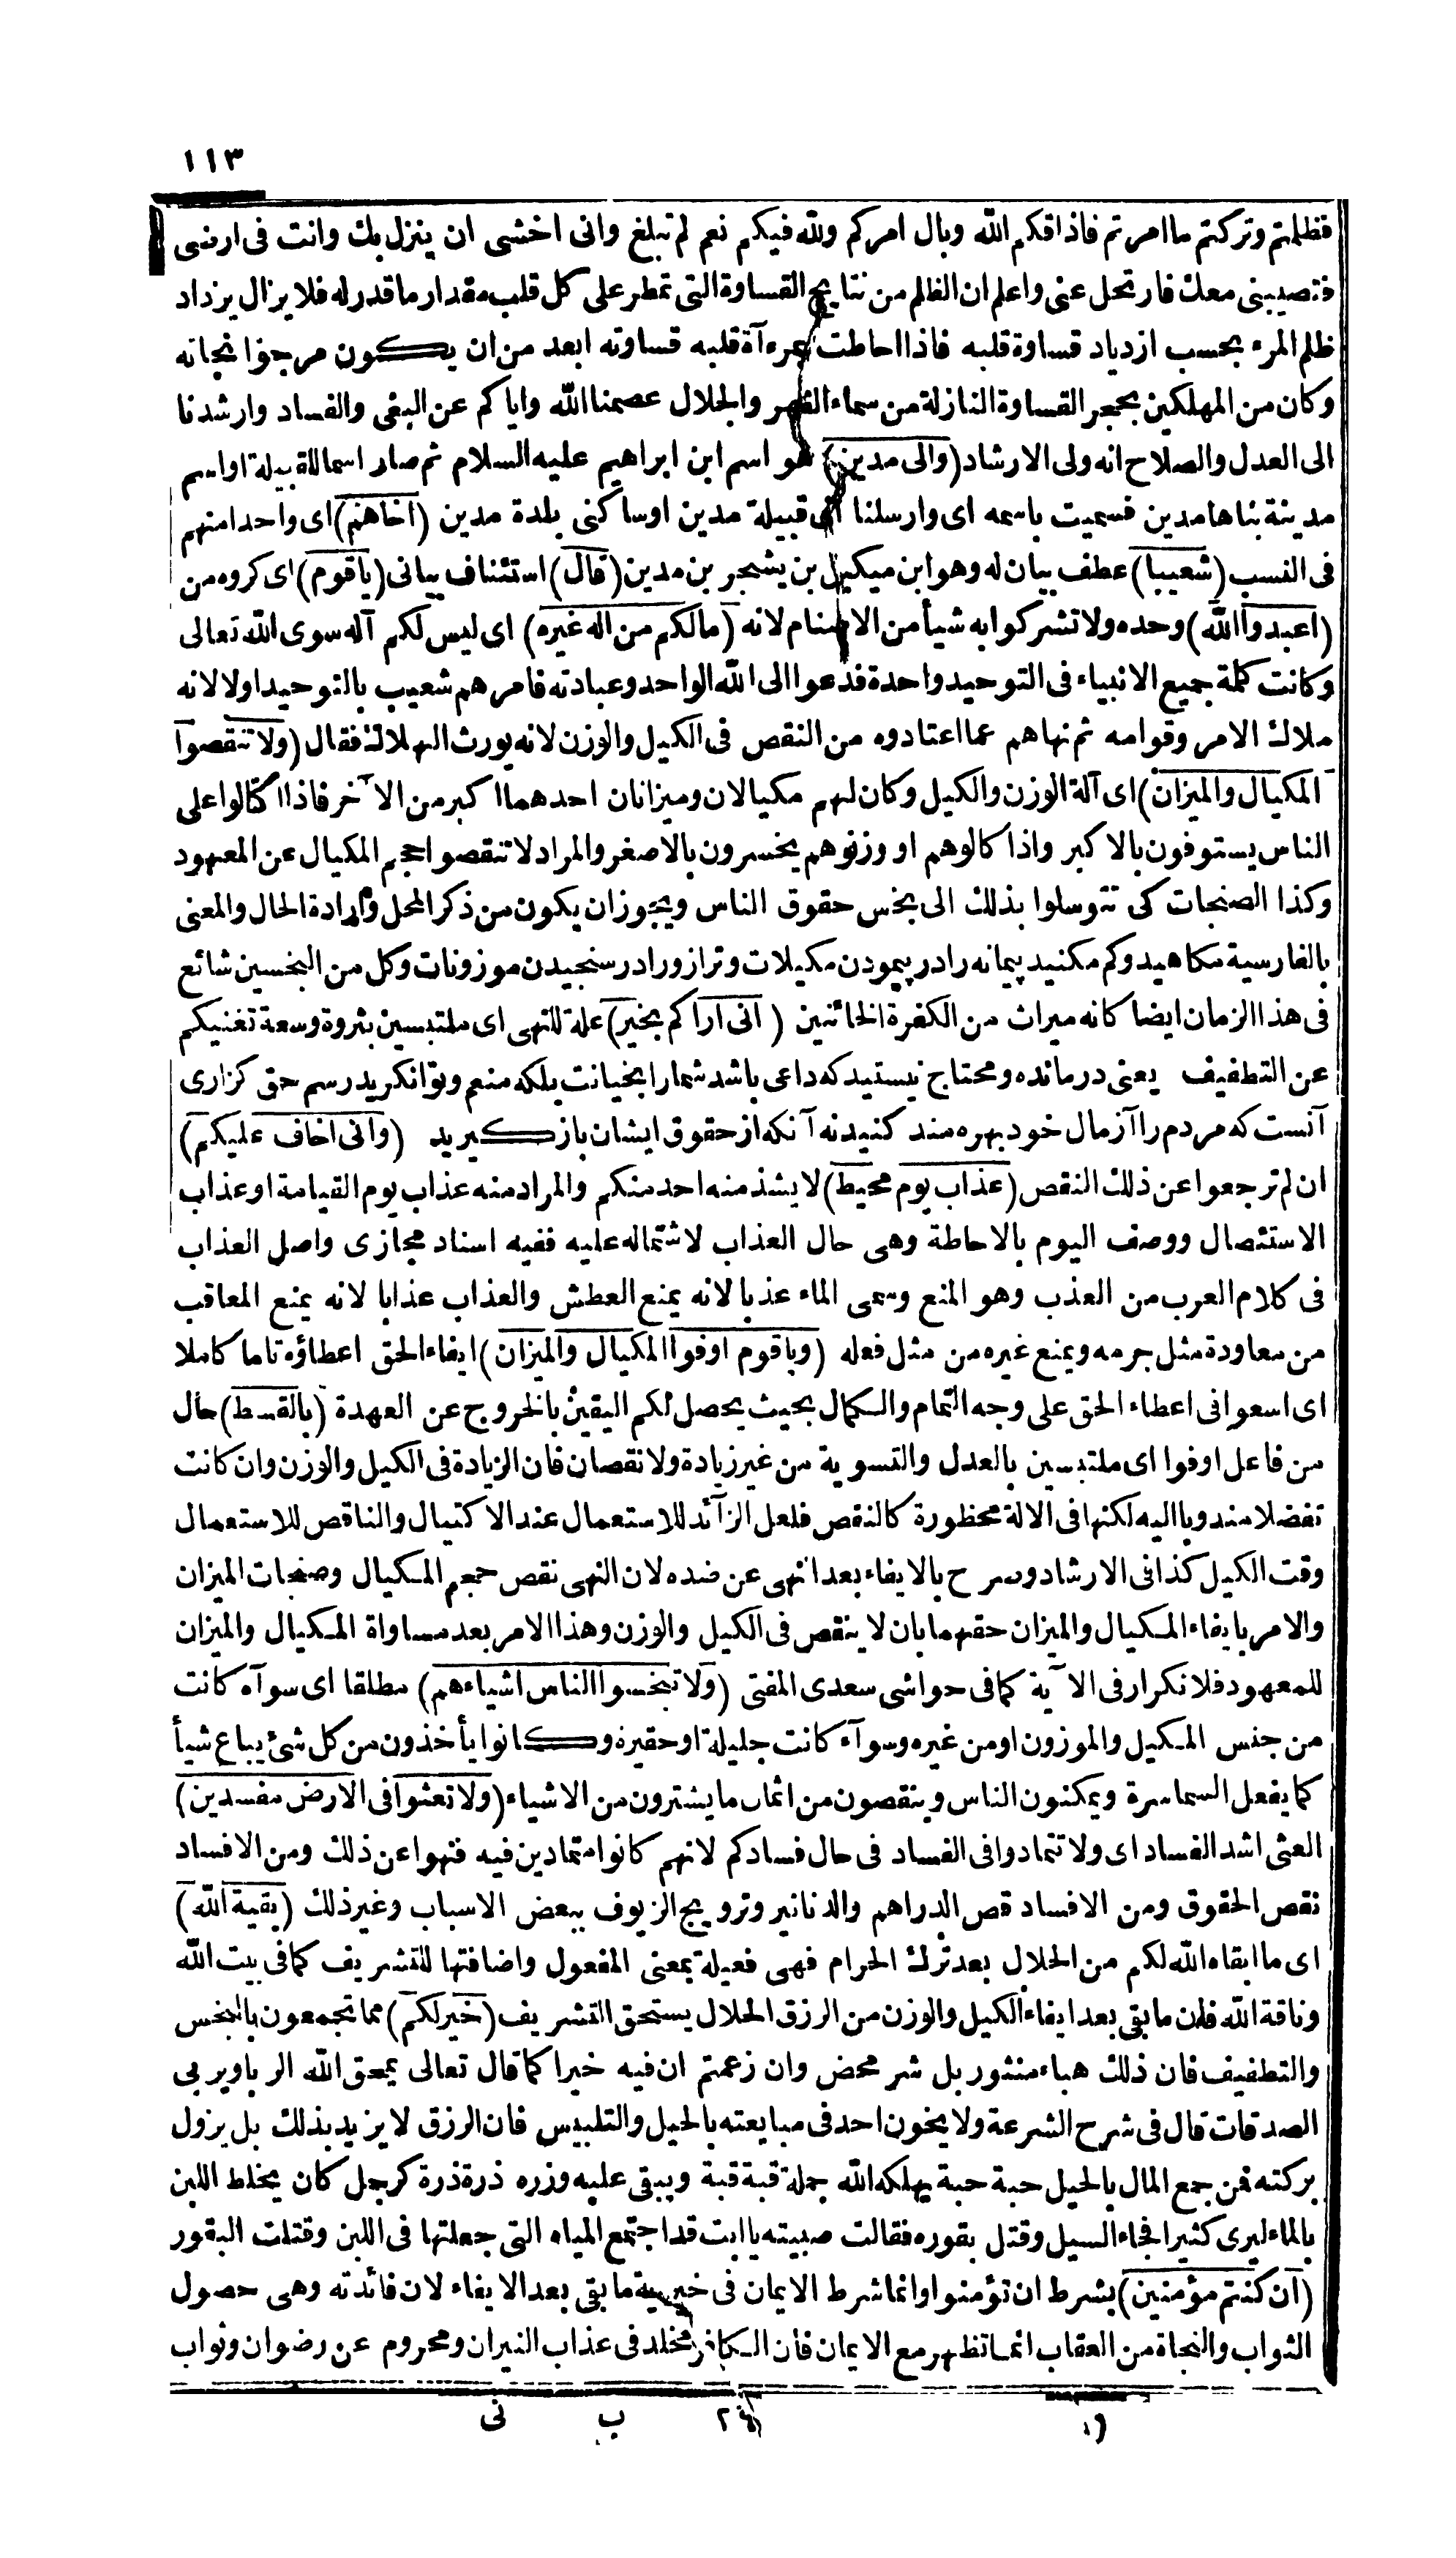 ١١٣
فظلمتم وتركتم ما امرتم فاذاقكم الله وبال امركم ولله فيكم نعم لم تبلغ وانى اخشى ان ينزل بك وانت فى ارضى
فتصيبنى معك فارتحل عنى واعلم ان الظلم من نتايج القساوة التى تمطر على كل قلب مقدار ما قدر له فلا يزال يزداد
ظلم المرء بحسب ازدياد قساوة قلبه فاذا احاطت بمرءآة قلبه قساوته ابعد من ان يكون مرجوا نجاته
وكان من المهلكين بحجر القساوة النازلة من سماء القهر والجلال عصمنا الله واياكم عن البغى والفساد وارشدنا
الى العدل والصلاح انه ولى الارشاد (والى مدين) هو اسم ابن ابراهيم عليه السلام ثم صار اسما للقبيلة او اسم
مدينة بناها مدين فسميت باسمه اى وارسلنا الى قبيلة مدين او ساكنى بلدة مدين (اخاهم) اى واحدا منهم
فى النسب (شعيبا) عطف بيان له وهو ابن ميكيل بن يشجر بن مدين (قال) استئناف بيانى (ياقوم) اى كروه من
(اعبدوا الله) وحده ولا تشركوا به شيأ من الاصنام لانه (مالكم من اله غيره) اى ليس لكم آله سوى الله تعالى
وكانت كلمة جميع الانبياء فى التوحيد واحدة فدعوا الى الله الواحد وعبادته فامرهم شعيب بالتوحيد اولا لانه
ملاك الامر وقوامه ثم نهاهم عما اعتادوه من النقص فى الكيل والوزن لانه يورث الهلاك فقال (ولا تنقصوا
المكيال والميزان) اى آلة الوزن والكيل وكان لهم مكيالان وميزانان احدهما اكبر من الآخر فاذا اكتالوا على
الناس يستوفون بالاكبر واذا كالوهم او وزنوهم يخسرون بالاصغر والمراد لا تنقصوا حجم المكيال عن المعهود
وكذا الصنجات كى تتوسلوا بذلك الى بخس حقوق الناس ويجوز ان يكون من ذكر المحل وارادة الحال والمعنى
بالفارسية مكاهيد وكم مكنيد پيمانه را در پيمودن مكيلات وترازو را در سنجيدن موزونات وكل من البخسين شائع
فى هذا الزمان ايضا كانه ميراث من الكفرة الخائنين (انى اراكم بخير) علة للنهى اى ملتبسين بثروة وسعة تغنيكم
عن التطفيف يعنى درمانده ومحتاج نيستيد كه داعى باشد شمارا بخيانت بلكه منعم وتوانكريد رسم حق كزارى
آنست كه مردم را آز مال خود بهره مند كنيد نه آنكه از حقوق ايشان باز كيريد (وانى اخاف عليكم)
ان لم ترجعوا عن ذلك النقص (عذاب يوم محيط) لا يشذ منه احد منكم والمراد منه عذاب يوم القيامة او عذاب
الاستئصال ووصف اليوم بالاحاطة وهى حال العذاب لاشتماله عليه ففيه اسناد مجازى واصل العذاب
فى كلام العرب من العذب وهو المنع وسمى الماء عذبا لانه يمنع العطش والعذاب عذابا لانه يمنع المعاقب
من معاودة مثل جرمه ويمنع غيره من مثل فعله (وياقوم اوفوا المكيال والميزان) ايفاء الحق اعطاؤه تاما كاملا
اى اسعوا فى اعطاء الحق على وجه التمام والكمال بحيث يحصل لكم اليقين بالخروج عن العهدة (بالقسط) حال
من فاعل اوفوا اى ملتبسين بالعدل والتسوية من غير زيادة ولا نقصان فان الزيادة فى الكيل والوزن وان كانت
تفضلا مندوبا اليه لكنها فى الالة محظورة كالنقص فلعل الزآئد للاستعمال عند الاكتيال والناقص للاستعمال
وقت الكيل كذا فى الارشاد وصرح بالايفاء بعد النهى عن ضده لان النهى نقص حجم المكيال وصنجات الميزان
والامر بايفاء المكيال والميزان حقهما بان لا ينقص فى الكيل والوزن وهذا الامر بعد مساواة المكيال والميزان
للمعهود فلا تكرار فى الآية كما فى حواشى سعدى المفتى (ولا تبخسوا الناس اشياءهم) مطلقا اى سوآء كانت
من جنس المكيل والموزون او من غيره وسوآء كانت جليلة او حقيرة وكانوا يأخذون من كل شئ يباع شيأ
كما يفعل السماسرة ويمكنون الناس وينقصون من اثمان ما يشترون من الاشياء (ولا تعثوا فى الارض مفسدين)
العثى اشد الفساد اى ولا تتمادوا فى الفساد فى حال فسادكم لانهم كانوا متمادين فيه فنهوا عن ذلك ومن الافساد
نقص الحقوق ومن الافساد قص الدراهم والدنانير وترويج الزيوف ببعض الاسباب وغير ذلك (بقية الله)
اى ما ابقاه الله لكم من الحلال بعد ترك الحرام فهى فعيلة بمعنى المفعول واضافتها للتشريف كما فى بيت الله
وناقة الله فان ما بقى بعد ايفاء الكيل والوزن من الرزق الحلال يستحق التشريف (خير لكم) مما تجمعون بالبخس
والتطفيف فان ذلك هباء منثور بل شر محض وان زعمتم ان فيه خيرا كما قال تعالى يمحق الله الربا ويربى
الصدقات قال فى شرح الشرعة ولا يخون احد فى مبايعته بالحيل والتلبيس فان الرزق لا يزيد بذلك بل يزول
بركته فمن جمع المال بالحيل حبة حبة يهلكه الله جملة قبة قبة ويبقى عليه وزره ذرة ذرة كرجل كان يخلط اللبن
بالماء ليرى كثيرا فجاء السيل وقتل بقوره فقالت صبيته يا ابت قد اجتمع المياه التى جعلتها فى اللبن وقتلت البقور
(ان كنتم مؤمنين) بشرط ان تؤمنوا وانما شرط الايمان فى خيرية ما بقى بعد الايفاء لان فائدته وهى حصول
الثواب والنجاة من العقاب انما تظهر مع الايمان فان الكافر مخلد فى عذاب النيران ومحروم عن رضوان وثواب
ب نى